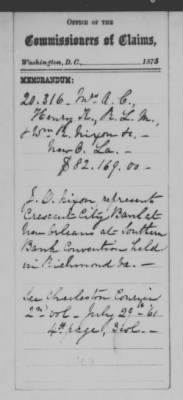 OFFICE OF THE
Commissioners of Claims,
Washington, D. C., 1875
MEMORANDUM:
20.316 - Mrs A. C.,
Henry Fr., R. L. M.,
& Wm R. Nixon &. -
New O. La. -
$82.169.00 -
J. O. Nixon represent
Crescent City Bank at
New Orleans at Southern
Bank Convention held
in Richmond Va. -
See Charleston Courier
2nd vol - July 29th 61
4th page, 3 col. -